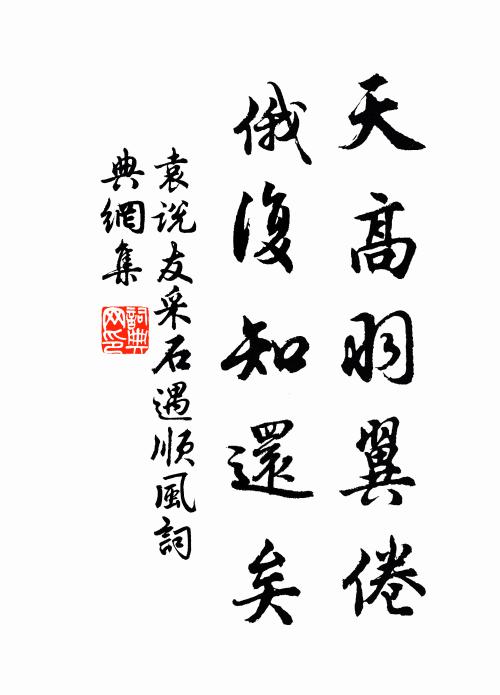 天高羽翼倦
俄復知還矣
袁説友采石遇順風詞
典網集
詞典
网印